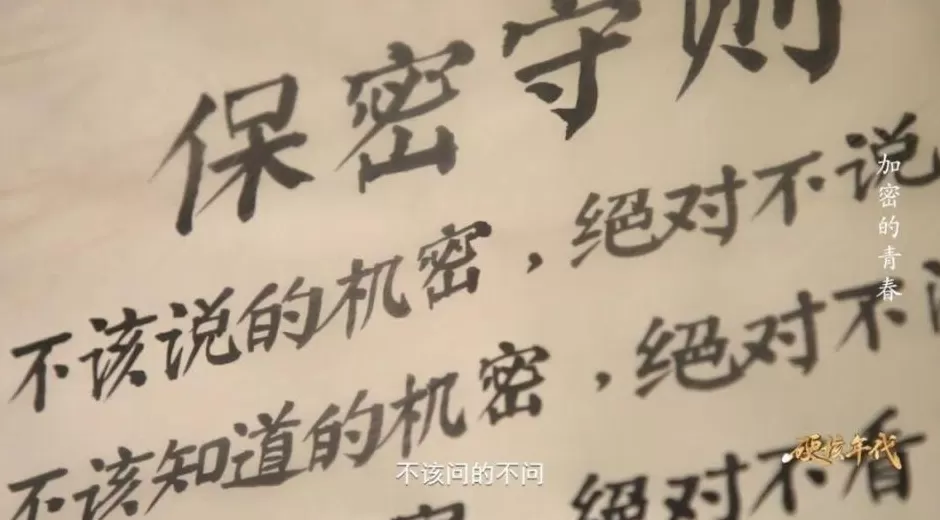 保密守则
不该说的机密，绝对不说
不该知道的机密，绝对不
密，绝对不看
加密的青春
硬核年代
不该问的不问